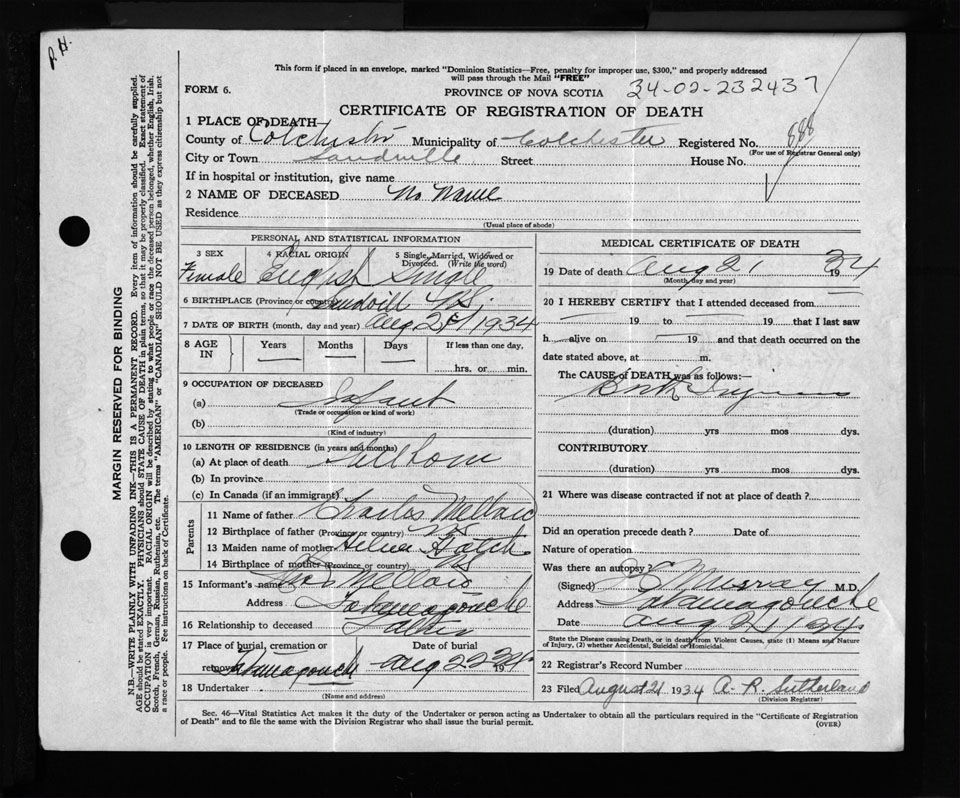 P. H.
This form if placed in an envelope, marked "Dominion Statistics—Free, penalty for improper use, $300," and properly addressed
will pass through the Mail "FREE"
FORM 6.
PROVINCE OF NOVA SCOTIA
34-02-232437
CERTIFICATE OF REGISTRATION OF DEATH
1 PLACE OF DEATH
County of Colchester Municipality of Colchester Registered No. 888
(For use of Registrar General only)
City or Town Sandville Street House No.
If in hospital or institution, give name
2 NAME OF DECEASED No Name
Residence
(Usual place of abode)
PERSONAL AND STATISTICAL INFORMATION
3 SEX 4 RACIAL ORIGIN 5 Single, Married, Widowed or
Divorced. (Write the word)
Female English Single
6 BIRTHPLACE (Province or country) N.S.
7 DATE OF BIRTH (month, day and year) Aug 21 1934
8 AGE IN Years Months Days If less than one day,
hrs. or min.
9 OCCUPATION OF DECEASED
(a) Infant
(Trade or occupation or kind of work)
(b)
(Kind of industry)
10 LENGTH OF RESIDENCE (in years and months)
(a) At place of death Still born
(b) In province
(c) In Canada (if an immigrant)
Parents
11 Name of father Charles
12 Birthplace of father (Province or country) NS
13 Maiden name of mother
14 Birthplace of mother (Province or country) NS
15 Informant's name Chas
Address Tatamagouche
16 Relationship to deceased Father
17 Place of burial, cremation or Date of burial
removal Tatamagouche Aug 22 1934
18 Undertaker
(Name and address)
MEDICAL CERTIFICATE OF DEATH
19 Date of death Aug 21 1934
(Month, day and year)
20 I HEREBY CERTIFY that I attended deceased from
19 to 19 that I last saw
h alive on 19 and that death occurred on the
date stated above, at m.
The CAUSE of DEATH was as follows:—
Birth Injuries
(duration) yrs mos dys.
CONTRIBUTORY
(duration) yrs mos dys.
21 Where was disease contracted if not at place of death?
Did an operation precede death? Date of
Nature of operation
Was there an autopsy?
(Signed) Murray M.D.
Address Tatamagouche
Date Aug 21 1934
State the Disease causing Death, or in death from Violent Causes, state (1) Means and Nature
of Injury, (2) whether Accidental, Suicidal or Homicidal.
22 Registrar's Record Number
23 Filed August 21 1934 A. R. Sutherland
(Division Registrar)
Sec. 46—Vital Statistics Act makes it the duty of the Undertaker or person acting as Undertaker to obtain all the particulars required in the "Certificate of Registration
of Death" and to file the same with the Division Registrar who shall issue the burial permit.
(OVER)
MARGIN RESERVED FOR BINDING
N.B.—WRITE PLAINLY WITH UNFADING INK—THIS IS A PERMANENT RECORD. Every item of information should be carefully supplied.
AGE should be stated EXACTLY. PHYSICIANS should STATE CAUSE OF DEATH in plain terms, so that it may be properly classified. Exact statement of
OCCUPATION is very important. RACIAL ORIGIN will be described by stating to what people or race the deceased person belonged, whether English, Irish,
Scotch, French, German, Russian, Ruthenian, etc. The terms "AMERICAN" or "CANADIAN" SHOULD NOT BE USED as they express citizenship but not
a race or people. Fee instructions on back of Certificate.